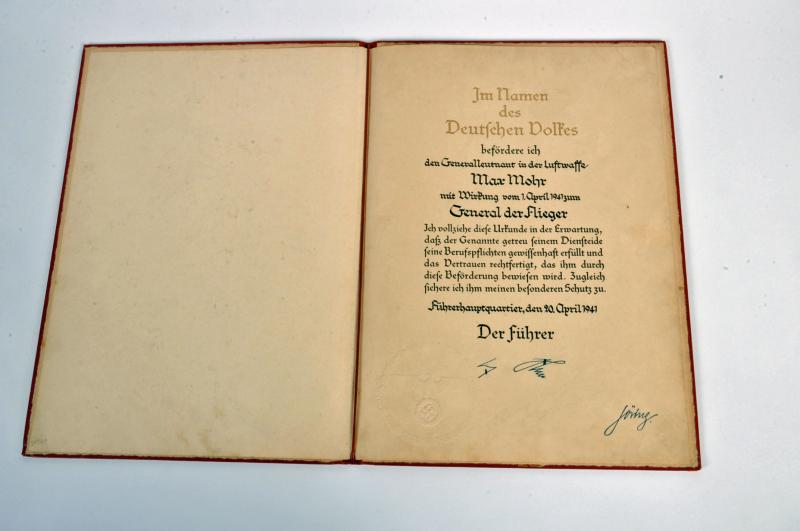 Im Namen
des
Deutschen Volkes
befördere ich
den Generalleutnant in der Luftwaffe
Max Mohr
mit Wirkung vom 1. April 1941 zum
General der Flieger
Ich vollziehe diese Urkunde in der Erwartung,
daß der Genannte getreu seinem Diensteide
seine Berufspflichten gewissenhaft erfüllt und
das Vertrauen rechtfertigt, das ihm durch
diese Beförderung bewiesen wird. Zugleich
sichere ich ihm meinen besonderen Schutz zu.
Führerhauptquartier, den 20. April 1941
Der Führer
Göring.